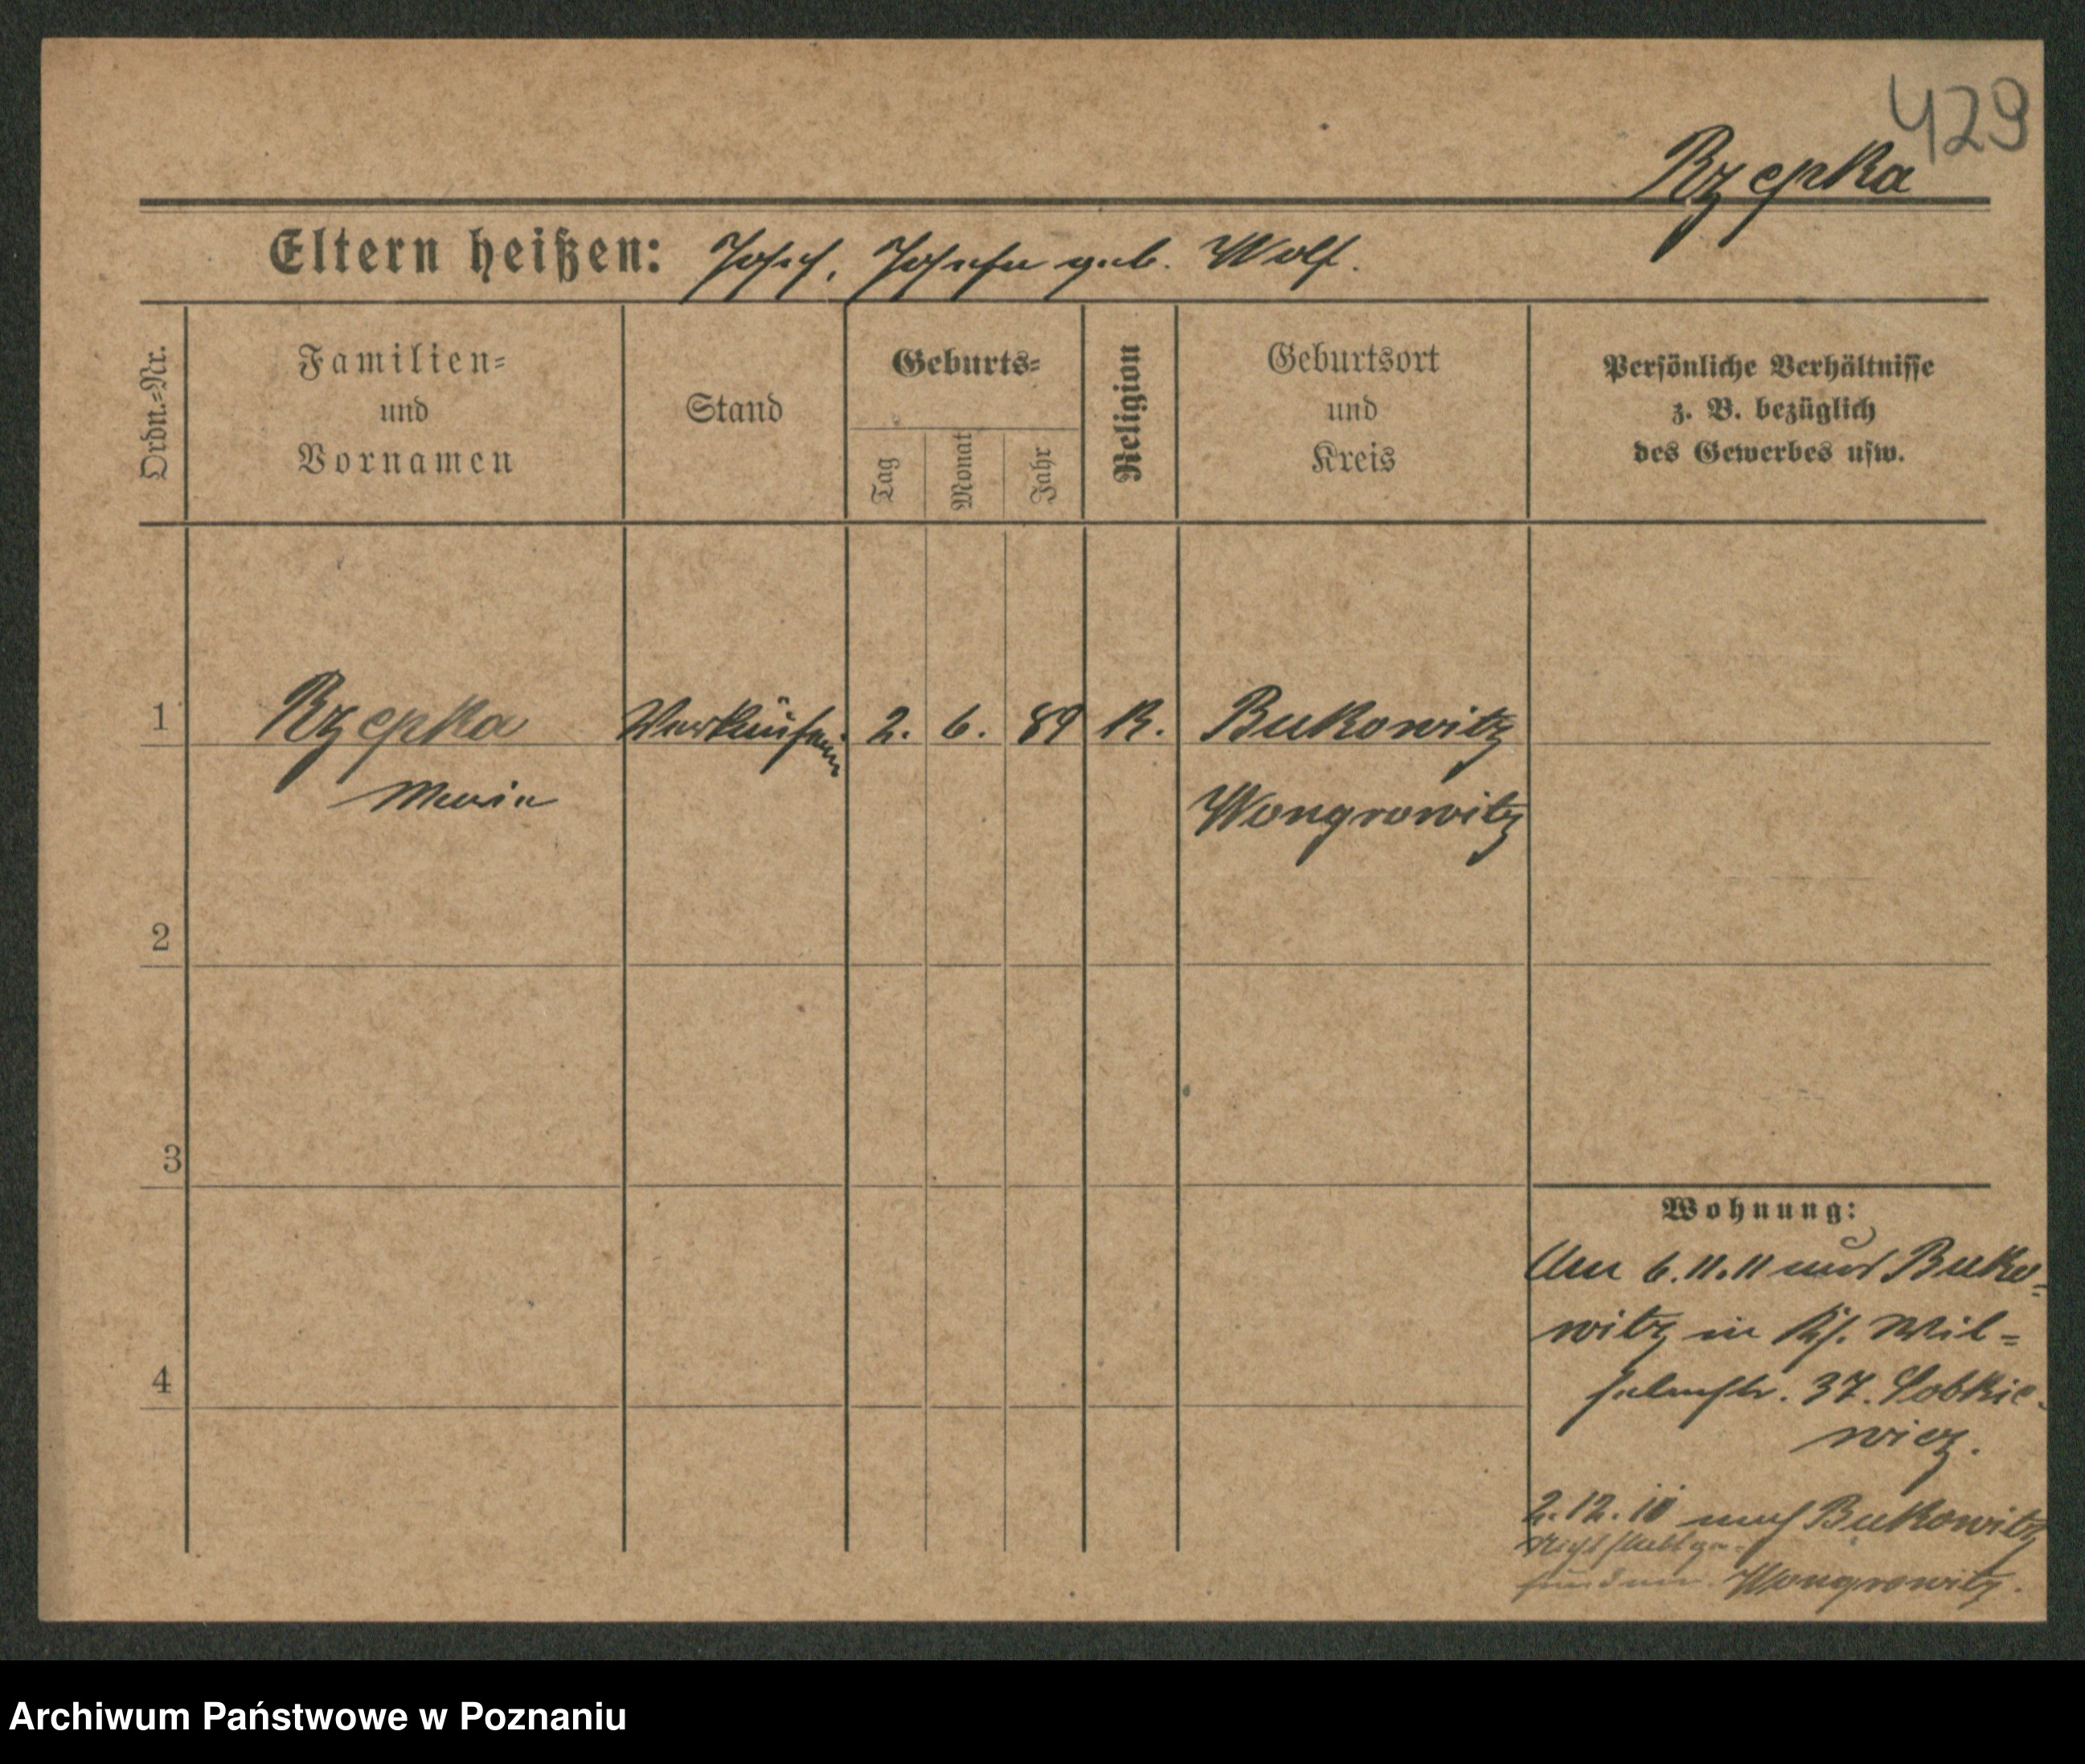 429
Rzepka
Eltern heißen: Josef, Josefa geb. Wolf.
Ordn.=Nr.
Familien=
und
Vornamen
Stand
Geburts=
Tag
Monat
Jahr
Religion
Geburtsort
und
Kreis
Persönliche Verhältnisse
z. B. bezüglich
des Gewerbes usw.
1 Rzepka Verkäuferin 2. 6. 89 K. Bukowitz
Maria Wongrowitz
2
3
4
Wohnung:
6.11.11 Buko=
witz in Wil=
helmstr. 37. Sobkie-
wicz.
2.12. nach Bukowitz
Wongrowitz.
Archiwum Państwowe w Poznaniu